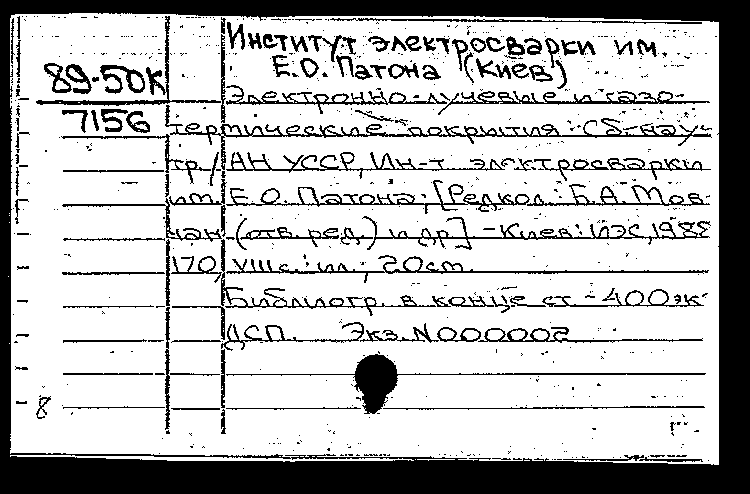 Институт электросварки им.
Е.О. Патона (Киев)
89-50К
7156
Электронно-лучевые и газо-
термические покрытия: Сб. науч.
тр. / АН УССР, Ин-т электросварки
им. Е.О. Патона; [Редкол.: Б.А. Мов-
чан (отв. ред.) и др.] - Киев: ИЭС, 1988
170, VIII с.: ил.; 20 см.
Библиогр. в конце ст. - 400 эк
ДСП. Экз. N000002
8